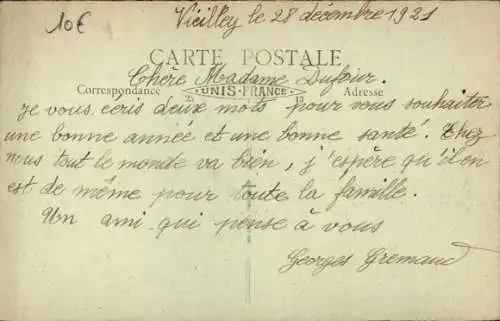 10€
Vieilley le 28 décembre 1921
CARTE POSTALE
Chère Madame Dufour.
Correspondance UNIS-FRANCE Adresse
Je vous écris deux mots pour vous souhaiter
une bonne année et une bonne santé. Chez
nous tout le monde va bien, j'espère qu'il en
est de même pour toute la famille.
Un ami qui pense à vous
Georges Gremaud